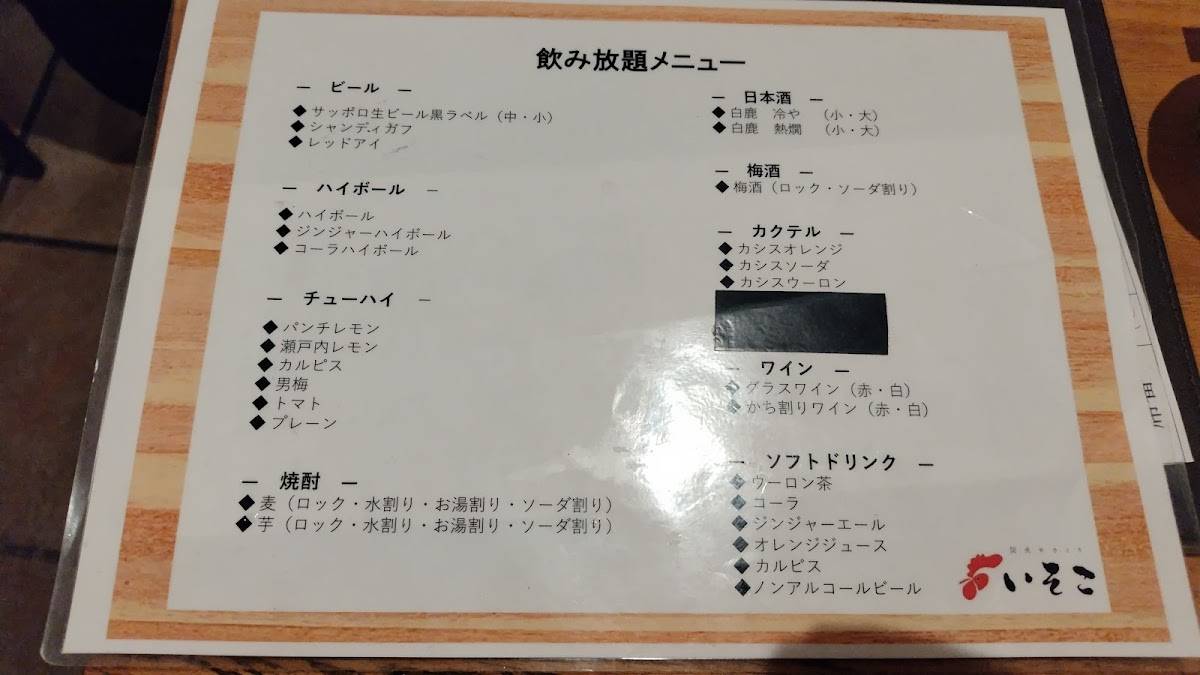 飲み放題メニュー
― ビール ―
◆サッポロ生ビール黒ラベル（中・小）
◆シャンディガフ
◆レッドアイ
― ハイボール ―
◆ハイボール
◆ジンジャーハイボール
◆コーラハイボール
― チューハイ ―
◆パンチレモン
◆瀬戸内レモン
◆カルピス
◆男梅
◆トマト
◆プレーン
― 焼酎 ―
◆麦（ロック・水割り・お湯割り・ソーダ割り）
◆芋（ロック・水割り・お湯割り・ソーダ割り）
― 日本酒 ―
◆白鹿 冷や （小・大）
◆白鹿 熱燗 （小・大）
― 梅酒 ―
◆梅酒（ロック・ソーダ割り）
― カクテル ―
◆カシスオレンジ
◆カシスソーダ
◆カシスウーロン
― ワイン ―
◆グラスワイン（赤・白）
◆かち割りワイン（赤・白）
― ソフトドリンク ―
◆ウーロン茶
◆コーラ
◆ジンジャーエール
◆オレンジジュース
◆カルピス
◆ノンアルコールビール
いそこ